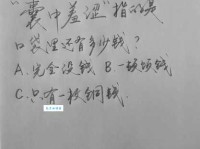 "囊中羞涩"指的是
口袋里还有多少钱？
A.完全没钱 B.一块碎钱
C.只有一枚铜钱.